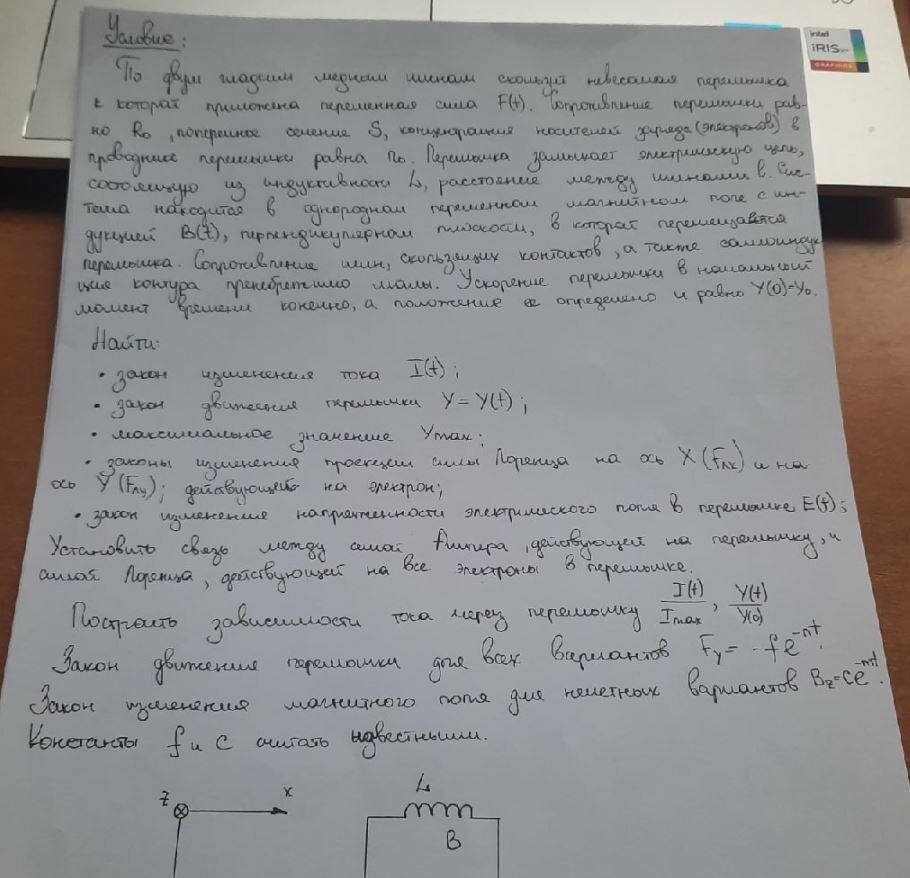 Условие:
intel
iRIS
GRAPHICS
По двум гладким медным шинам скользит невесомая перемычка
к которой приложена переменная сила F(t). Сопротивление перемычки рав-
но R₀, поперечное сечение S, концентрация носителей заряда (электронов) в
проводнике перемычки равна n₀. Перемычка замыкает электрическую цепь,
состоящую из индуктивности L, расстояние между шинами в. Сис-
тема находится в однородном переменном магнитном поле с ин-
дукцией B(t), перпендикулярном плоскости, в которой перемещается
перемычка. Сопротивление шин, скользящих контактов, а также самоиндук
ция контура пренебрежимо малы. Ускорение перемычки в начальный
момент времени конечно, а положение ее определено и равно Y(0)=Y₀.
Найти:
• закон изменения тока I(t);
• закон движения перемычки Y = Y(t);
• максимальное значение Ymax;
• законы изменения проекции силы Лоренца на ось X (Fлx) и на
ось Y (Fлy); действующей на электрон;
• закон изменения напряженности электрического поля в перемычке E(t);
Установить связь между силой Ампера, действующей на перемычку, и
силой Лоренца, действующей на все электроны в перемычке.
Построить зависимости тока через перемычку I(t)/Imax, Y(t)/Y(0)
Закон движения перемычки для всех вариантов Fy = -fe^-nt.
Закон изменения магнитного поля для нечетных вариантов Bz=ce^-mt.
Константы f и c считать известными.
z x L
B